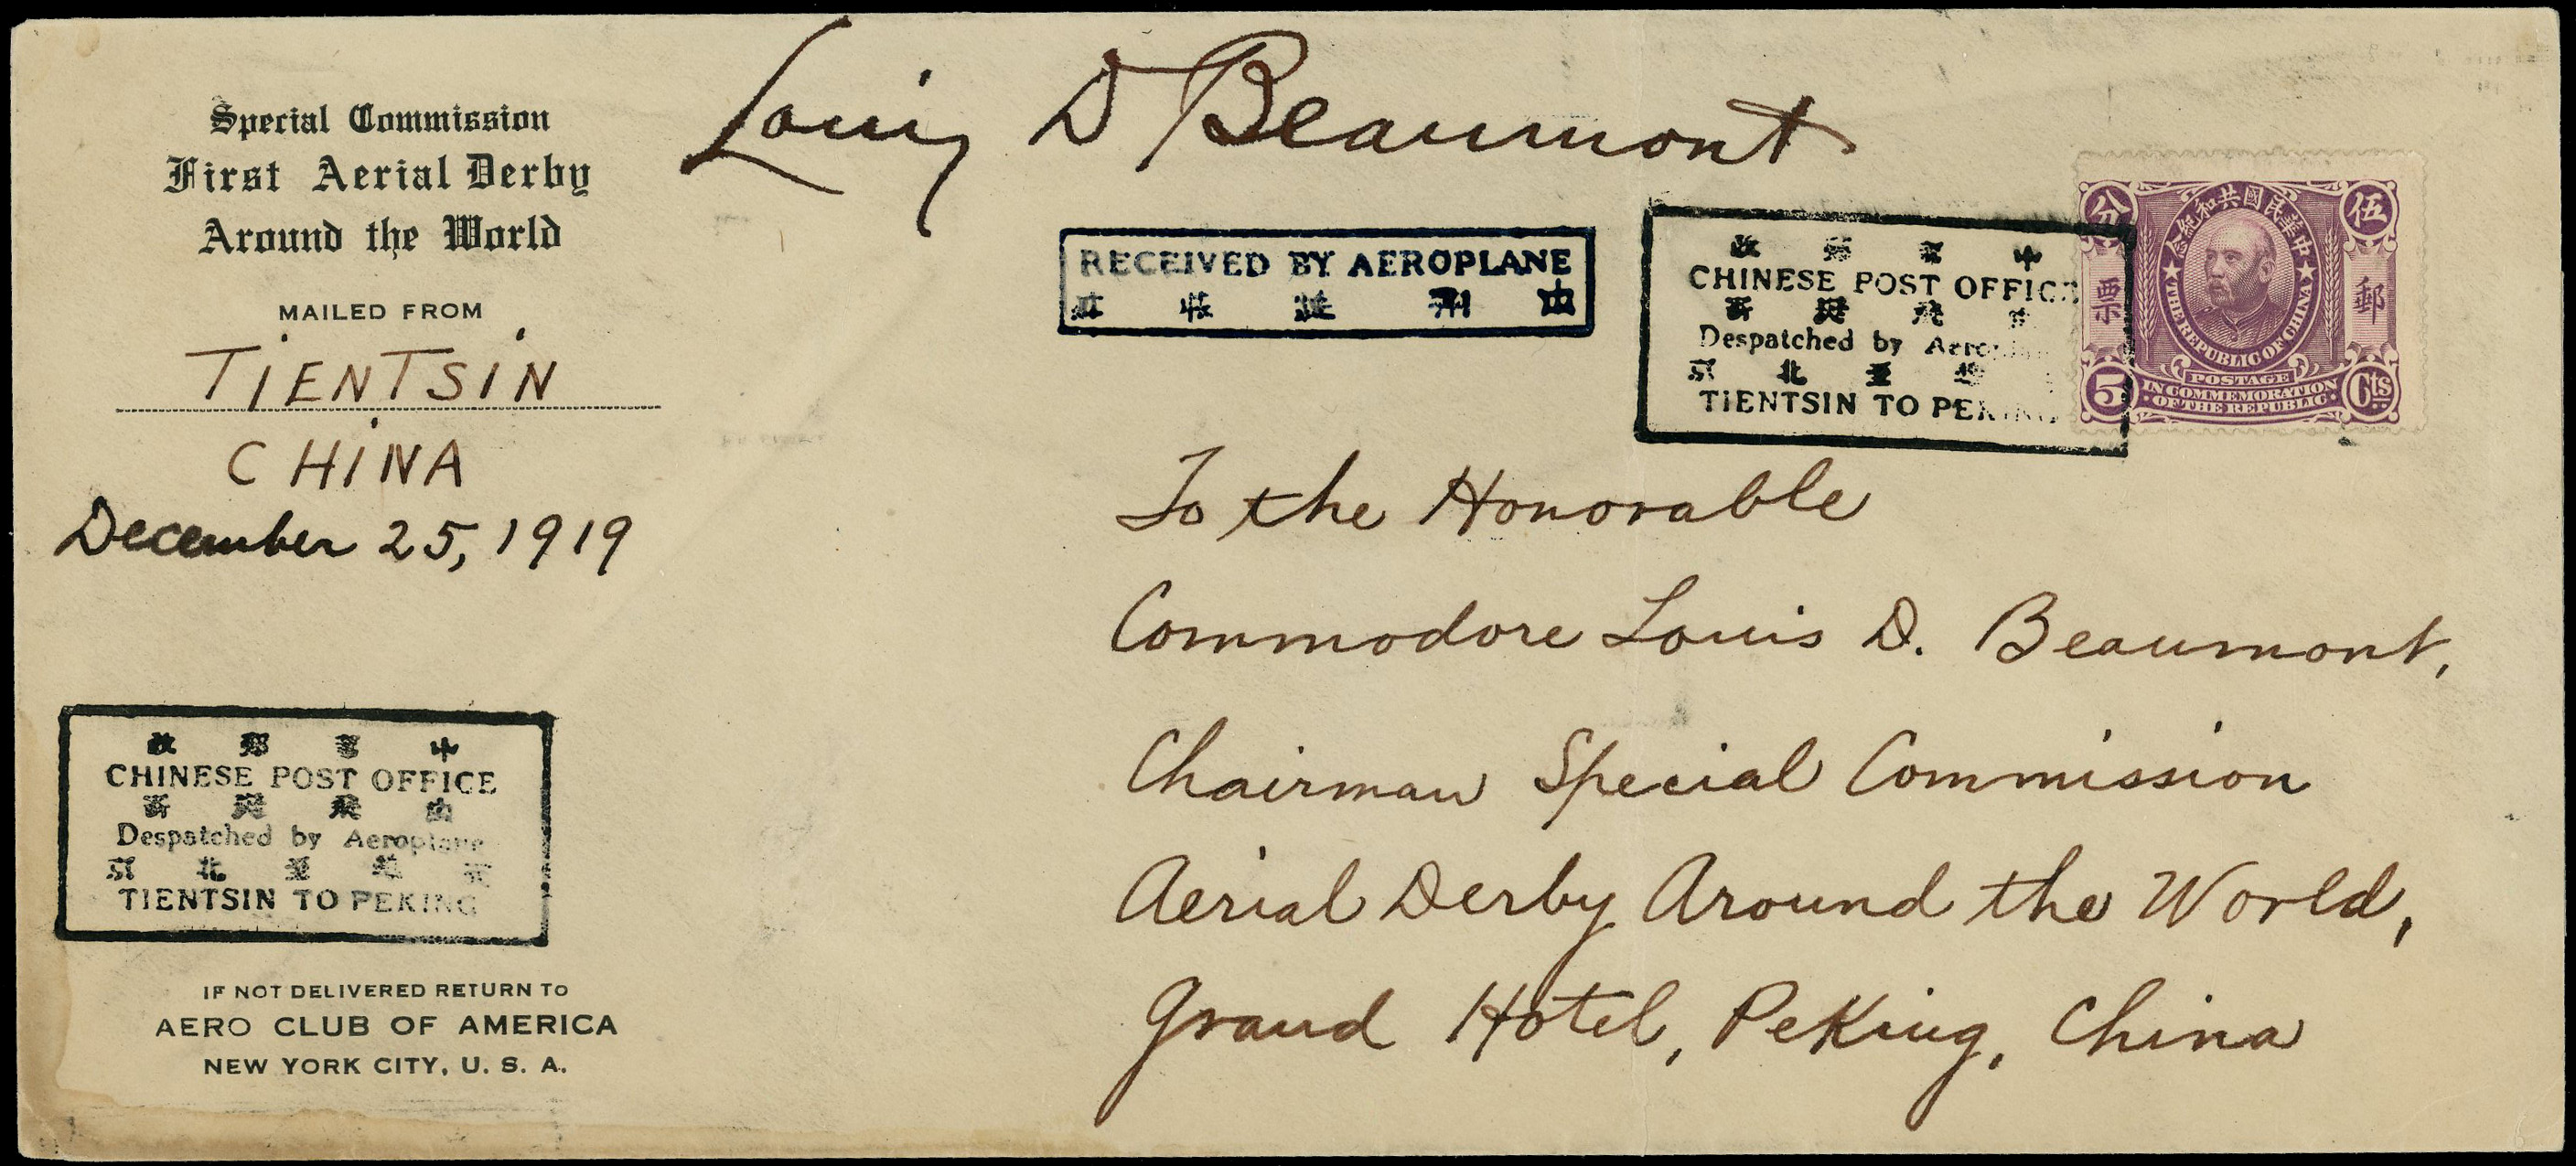 Special Commission
First Aerial Derby
Around the World
MAILED FROM
TIENTSIN
CHINA
December 25, 1919
Louis D Beaumont
RECEIVED BY AEROPLANE
政 郵 華 中
CHINESE POST OFFICE
寄 機 飛 由
Despatched by Aeroplane
京 北 至 津
TIENTSIN TO PEKING
中華民國共和紀念
分 伍
票 郵
THE REPUBLIC OF CHINA
POSTAGE
5 IN COMMEMORATION Cts
OF THE REPUBLIC
To the Honorable
Commodore Louis D. Beaumont,
Chairman Special Commission
Aerial Derby Around the World,
Grand Hotel, Peking, China
政 郵 華 中
CHINESE POST OFFICE
寄 機 飛 由
Despatched by Aeroplane
京 北 至 津
TIENTSIN TO PEKING
IF NOT DELIVERED RETURN TO
AERO CLUB OF AMERICA
NEW YORK CITY, U. S. A.